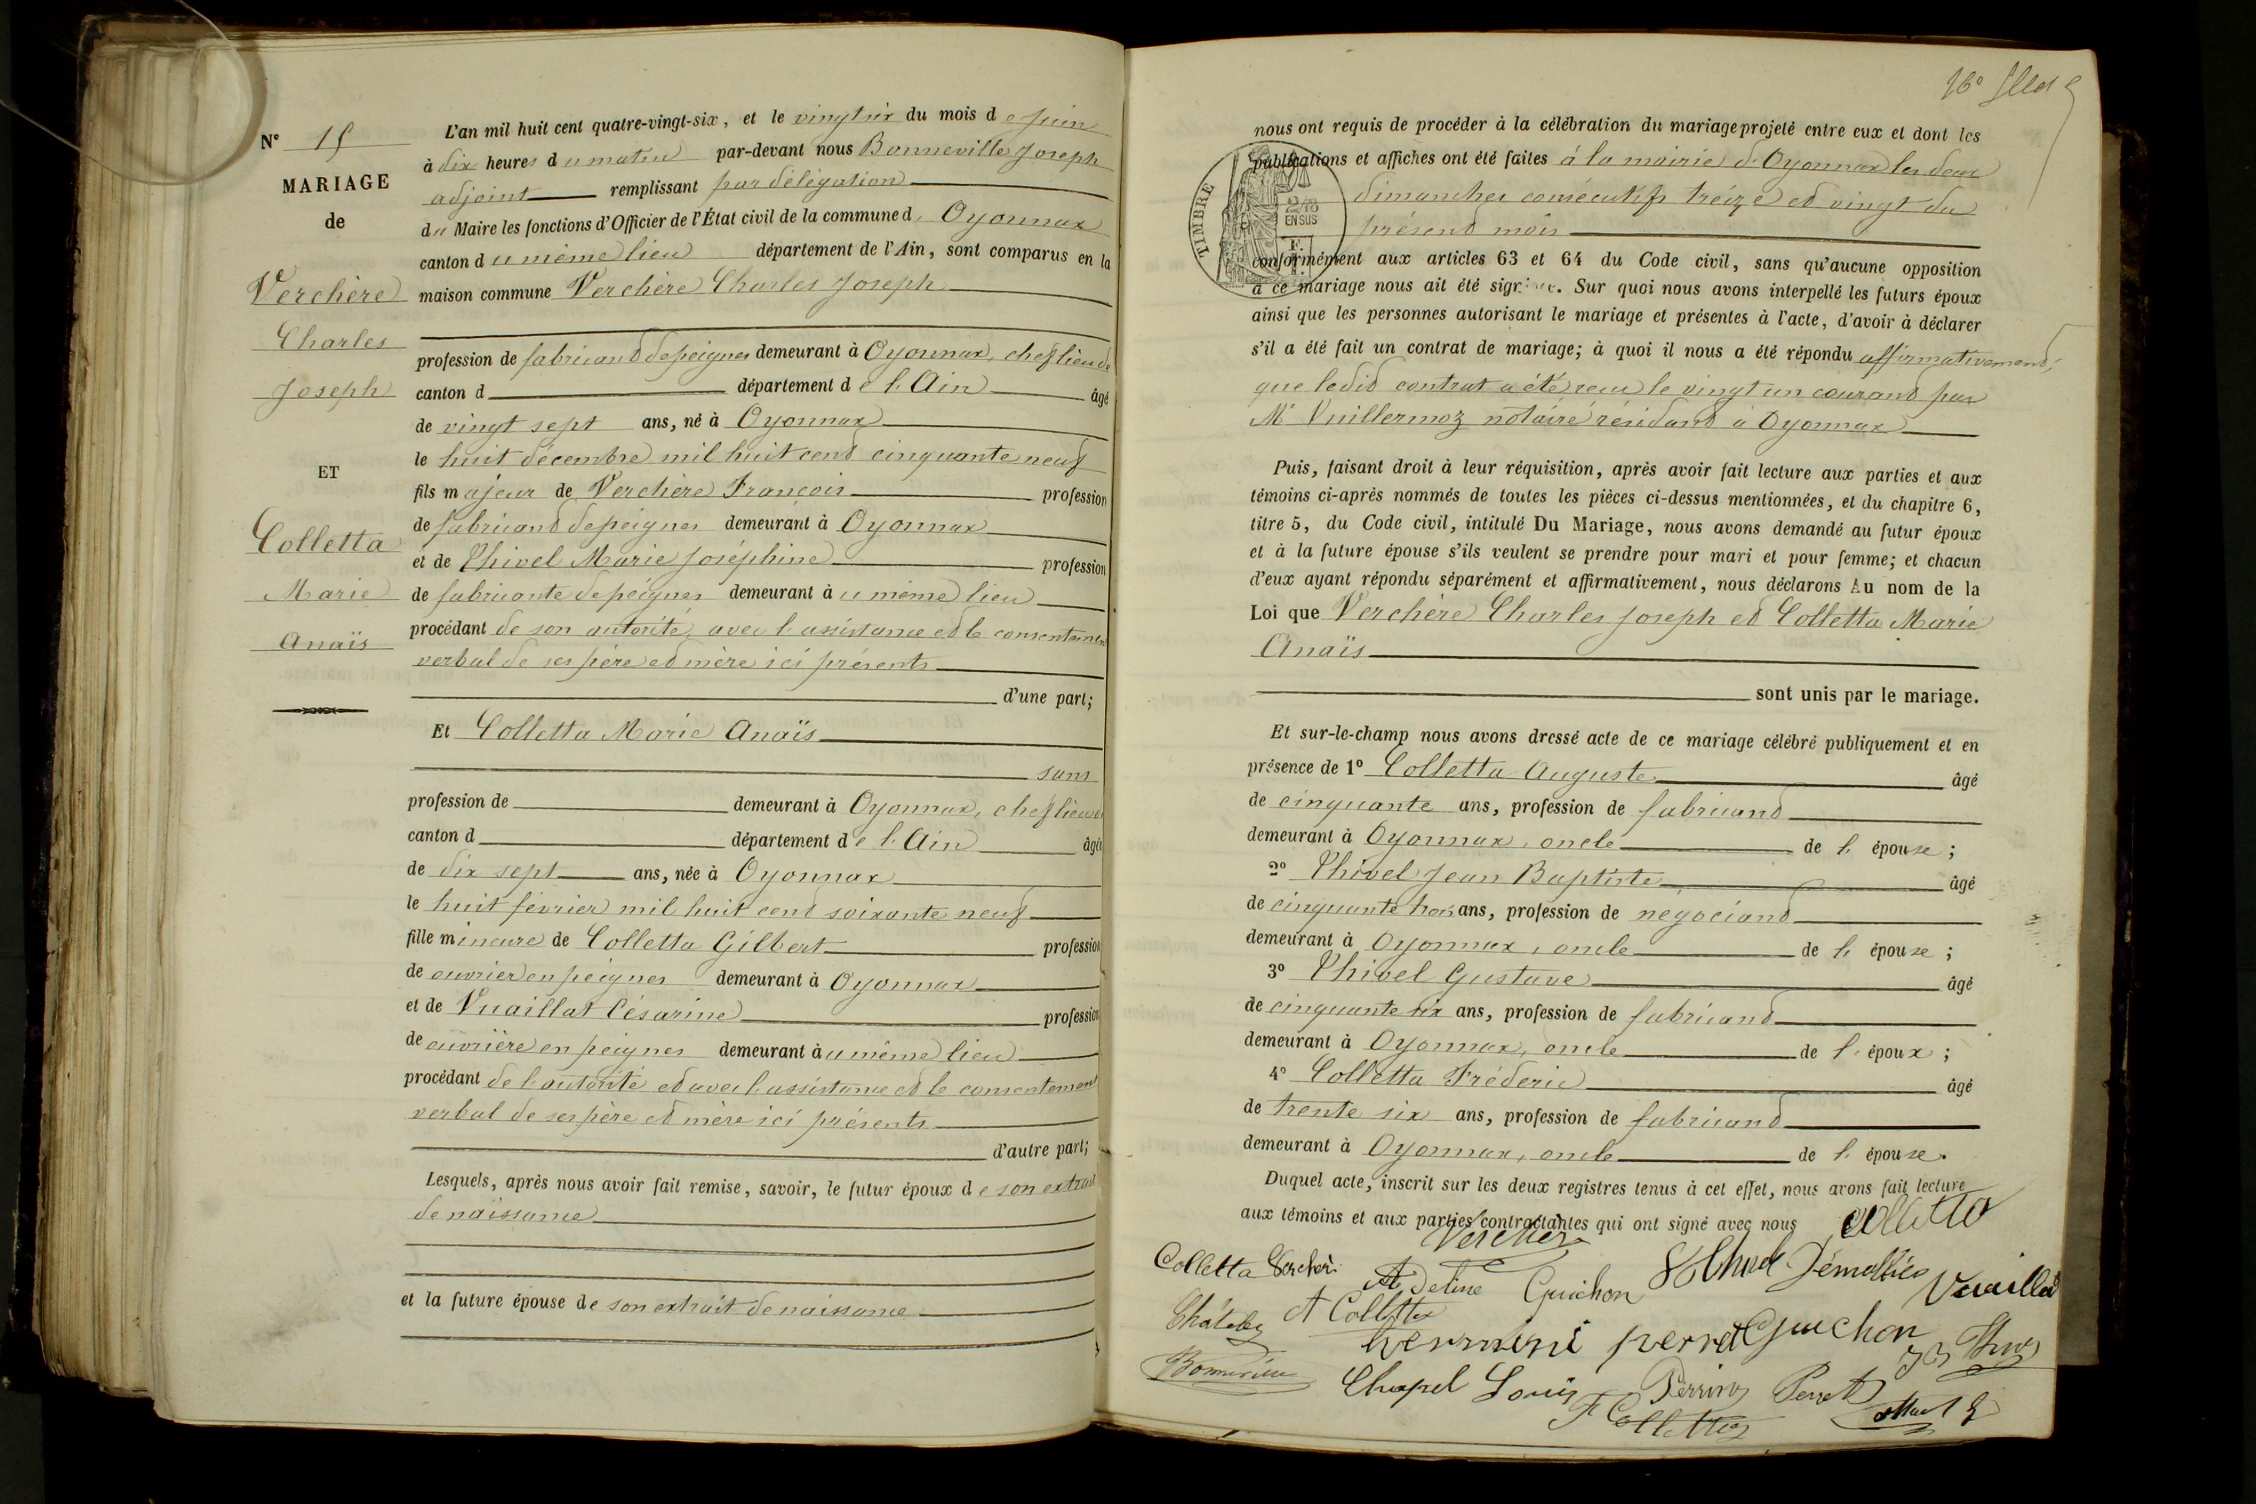 N° 15
MARIAGE
de
Verchère
Charles
Joseph
ET
Colletta
Marie
Anaïs
L'an mil huit cent quatre-vingt-six, et le vingt six du mois de juin
à dix heures du matin par-devant nous Bonneville Joseph
adjoint remplissant par délégation
du Maire les fonctions d'Officier de l'État civil de la commune d'Oyonnax
canton du même lieu département de l'Ain, sont comparus en la
maison commune Verchère Charles Joseph
profession de fabricant de peignes demeurant à Oyonnax, chef lieu de
canton d département de l'Ain âgé
de vingt sept ans, né à Oyonnax
le huit décembre mil huit cent cinquante neuf
fils majeur de Verchère François profession
de fabricant de peignes demeurant à Oyonnax
et de Thivel Marie Joséphine profession
de fabricante de peignes demeurant au même lieu
procédant de son autorité, avec l'assistance et le consentement
verbal de ses père et mère ici présents
d'une part;
Et Colletta Marie Anaïs
sans
profession de demeurant à Oyonnax, chef lieu de
canton d département de l'Ain âgée
de dix sept ans, née à Oyonnax
le huit février mil huit cent soixante neuf
fille mineure de Colletta Gilbert profession
de ouvrier en peignes demeurant à Oyonnax
et de Vuaillat Césarine profession
de ouvrière en peignes demeurant au même lieu
procédant de l'autorité et avec l'assistance et le consentement
verbal de ses père et mère ici présents
d'autre part;
Lesquels, après nous avoir fait remise, savoir, le futur époux de son extrait
de naissance
et la future épouse de son extrait de naissance
16°
nous ont requis de procéder à la célébration du mariage projeté entre eux et dont les
publications et affiches ont été faites à la mairie d'Oyonnax les deux
dimanches consécutifs treize et vingt du
présent mois
TIMBRE
2/10 EN SUS
conformément aux articles 63 et 64 du Code civil, sans qu'aucune opposition
à ce mariage nous ait été signifiée. Sur quoi nous avons interpellé les futurs époux
ainsi que les personnes autorisant le mariage et présentes à l'acte, d'avoir à déclarer
s'il a été fait un contrat de mariage; à quoi il nous a été répondu affirmativement,
que ledit contrat a été reçu le vingt un courant par
Me Vuillermoz notaire résidant à Oyonnax
Puis, faisant droit à leur réquisition, après avoir fait lecture aux parties et aux
témoins ci-après nommés de toutes les pièces ci-dessus mentionnées, et du chapitre 6,
titre 5, du Code civil, intitulé Du Mariage, nous avons demandé au futur époux
et à la future épouse s'ils veulent se prendre pour mari et pour femme; et chacun
d'eux ayant répondu séparément et affirmativement, nous déclarons Au nom de la
Loi que Verchère Charles Joseph et Colletta Marie
Anaïs
sont unis par le mariage.
Et sur-le-champ nous avons dressé acte de ce mariage célébré publiquement et en
présence de 1° Colletta Auguste âgé
de cinquante ans, profession de fabricant
demeurant à Oyonnax, oncle de l'épouse;
2° Thivel Jean Baptiste âgé
de cinquante trois ans, profession de negociant
demeurant à Oyonnax, oncle de l'épouse;
3° Thivel Gustave âgé
de cinquante six ans, profession de fabricant
demeurant à Oyonnax, oncle de l'époux;
4° Colletta Fréderic âgé
de trente six ans, profession de fabricant
demeurant à Oyonnax, oncle de l'épouse.
Duquel acte, inscrit sur les deux registres tenus à cet effet, nous avons fait lecture
aux témoins et aux parties contractantes qui ont signé avec nous Colletta
Verchère
Colletta Verchère Adeline Guichon Vuaillat
A Colletta
hermini perret Guichon
Bonneville Chapel Louis Perret
F Colletta